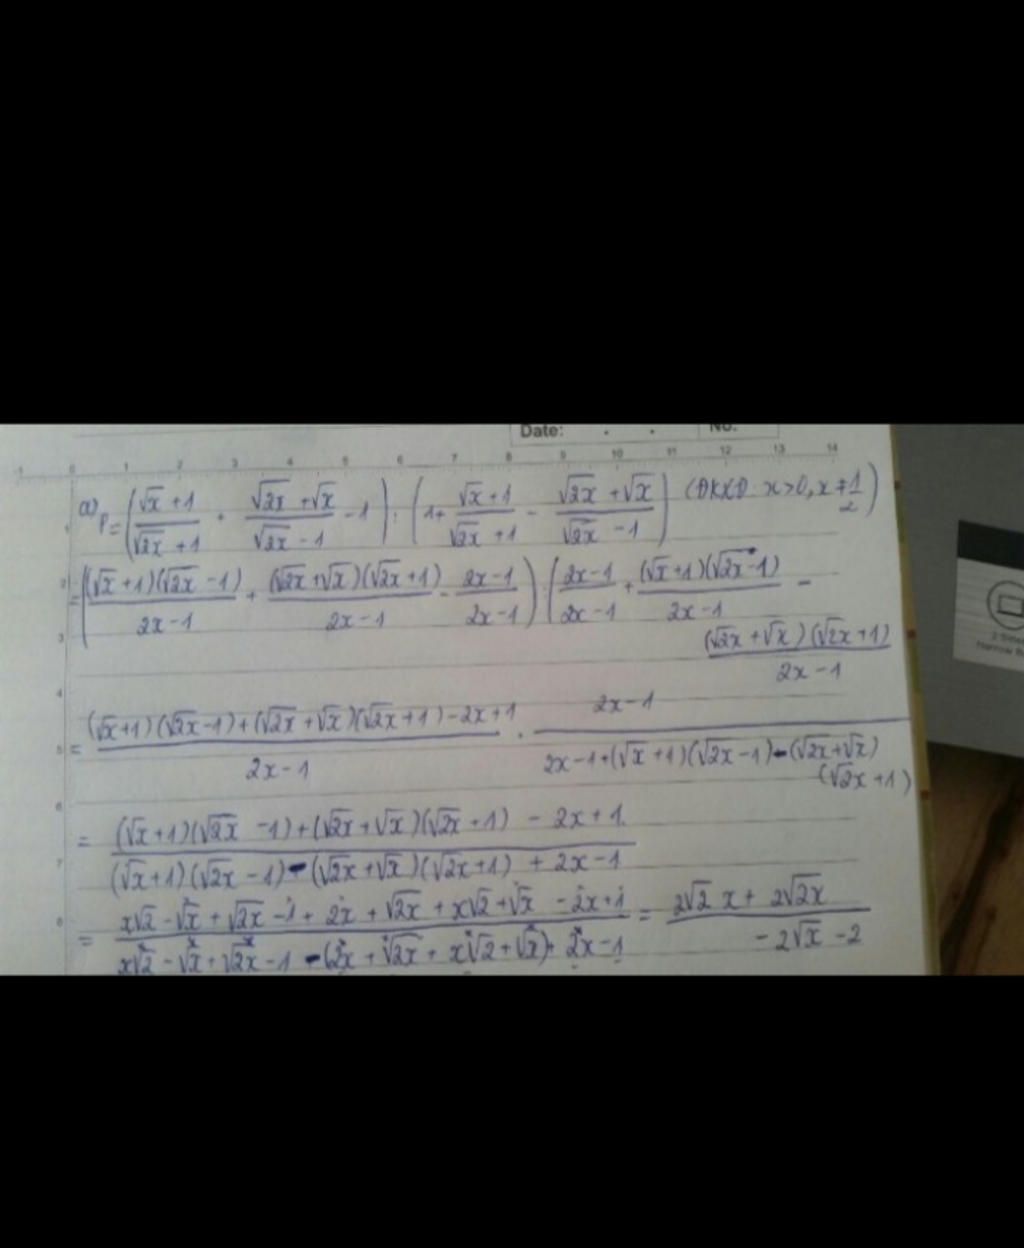 Date: . . No.
-1 0 1 2 3 4 5 6 7 8 9 10 11 12 13 14
a) P = ((√x + 1)/(√2x + 1) + (√2x + √x)/(√2x - 1) - 1) : (1 + (√x + 1)/(√2x + 1) - (√2x + √x)/(√2x - 1)) (ĐKXĐ: x > 0, x ≠ 1/2)
= ((√x + 1)(√2x - 1)/(2x - 1) + (√2x + √x)(√2x + 1)/(2x - 1) - (2x - 1)/(2x - 1)) : ((2x - 1)/(2x - 1) + (√x + 1)(√2x - 1)/(2x - 1) -
(√2x + √x)(√2x + 1)/(2x - 1)
= ((√x + 1)(√2x - 1) + (√2x + √x)(√2x + 1) - 2x + 1)/(2x - 1) . (2x - 1)/(2x - 1 + (√x + 1)(√2x - 1) - (√2x + √x)(√2x + 1))
= ((√x + 1)(√2x - 1) + (√2x + √x)(√2x + 1) - 2x + 1)/((√x + 1)(√2x - 1) - (√2x + √x)(√2x + 1) + 2x - 1)
= (x√2 - √x + √2x - 1 + 2x + √2x + x√2 + √x - 2x + 1)/(x√2 - √x + √2x - 1 - (2x + √2x + x√2 + √x) + 2x - 1) = (2√2 x + 2√2x)/(-2√x - 2)